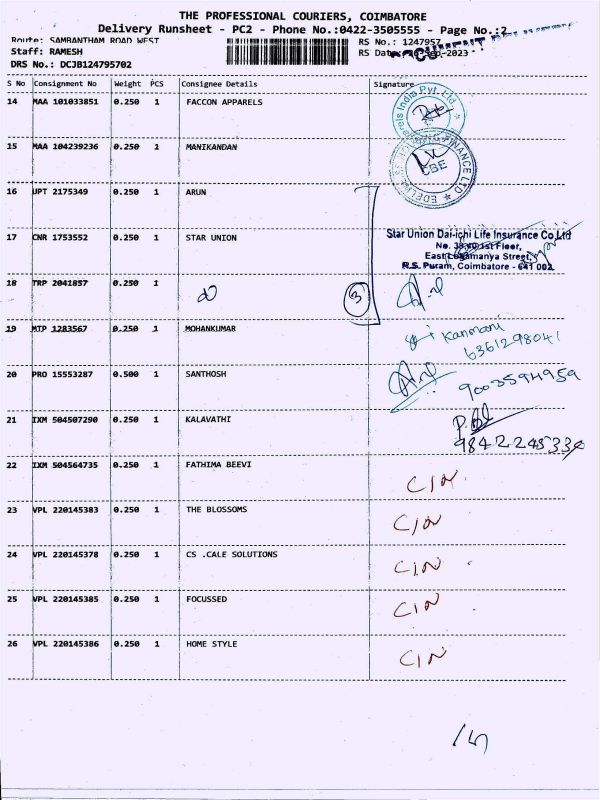 THE PROFESSIONAL COURIERS, COIMBATORE
Delivery Runsheet - PC2 - Phone No.:0422-3505555 - Page No.:2
Route: SAMBANTHAM ROAD WEST RS No.: 1247957
Staff: RAMESH RS Date: Sep-2023
DRS No.: DCJB124795702
S No Consignment No Weight PCS Consignee Details Signature
14 MAA 101033851 0.250 1 FACCON APPARELS
15 MAA 104239236 0.250 1 MANIKANDAN
CBE
16 UPT 2175349 0.250 1 ARUN
17 CNR 1753552 0.250 1 STAR UNION
Star Union Dai-ichi Life Insurance Co.Ltd
1st Floor,
East Lokamanya Street,
R.S. Puram, Coimbatore - 641 002.
18 TRP 2041857 0.250 1
3
19 MTP 1283567 0.250 1 MOHANKUMAR
Kanmani
6361298041
20 PRO 15553287 0.500 1 SANTHOSH
9003594959
21 IXM 504507290 0.250 1 KALAVATHI
22 IXM 504564735 0.250 1 FATHIMA BEEVI C/N
23 VPL 220145383 0.250 1 THE BLOSSOMS C/N
24 VPL 220145378 0.250 1 CS .CALE SOLUTIONS C/N
25 VPL 220145385 0.250 1 FOCUSSED C/N
26 VPL 220145386 0.250 1 HOME STYLE C/N